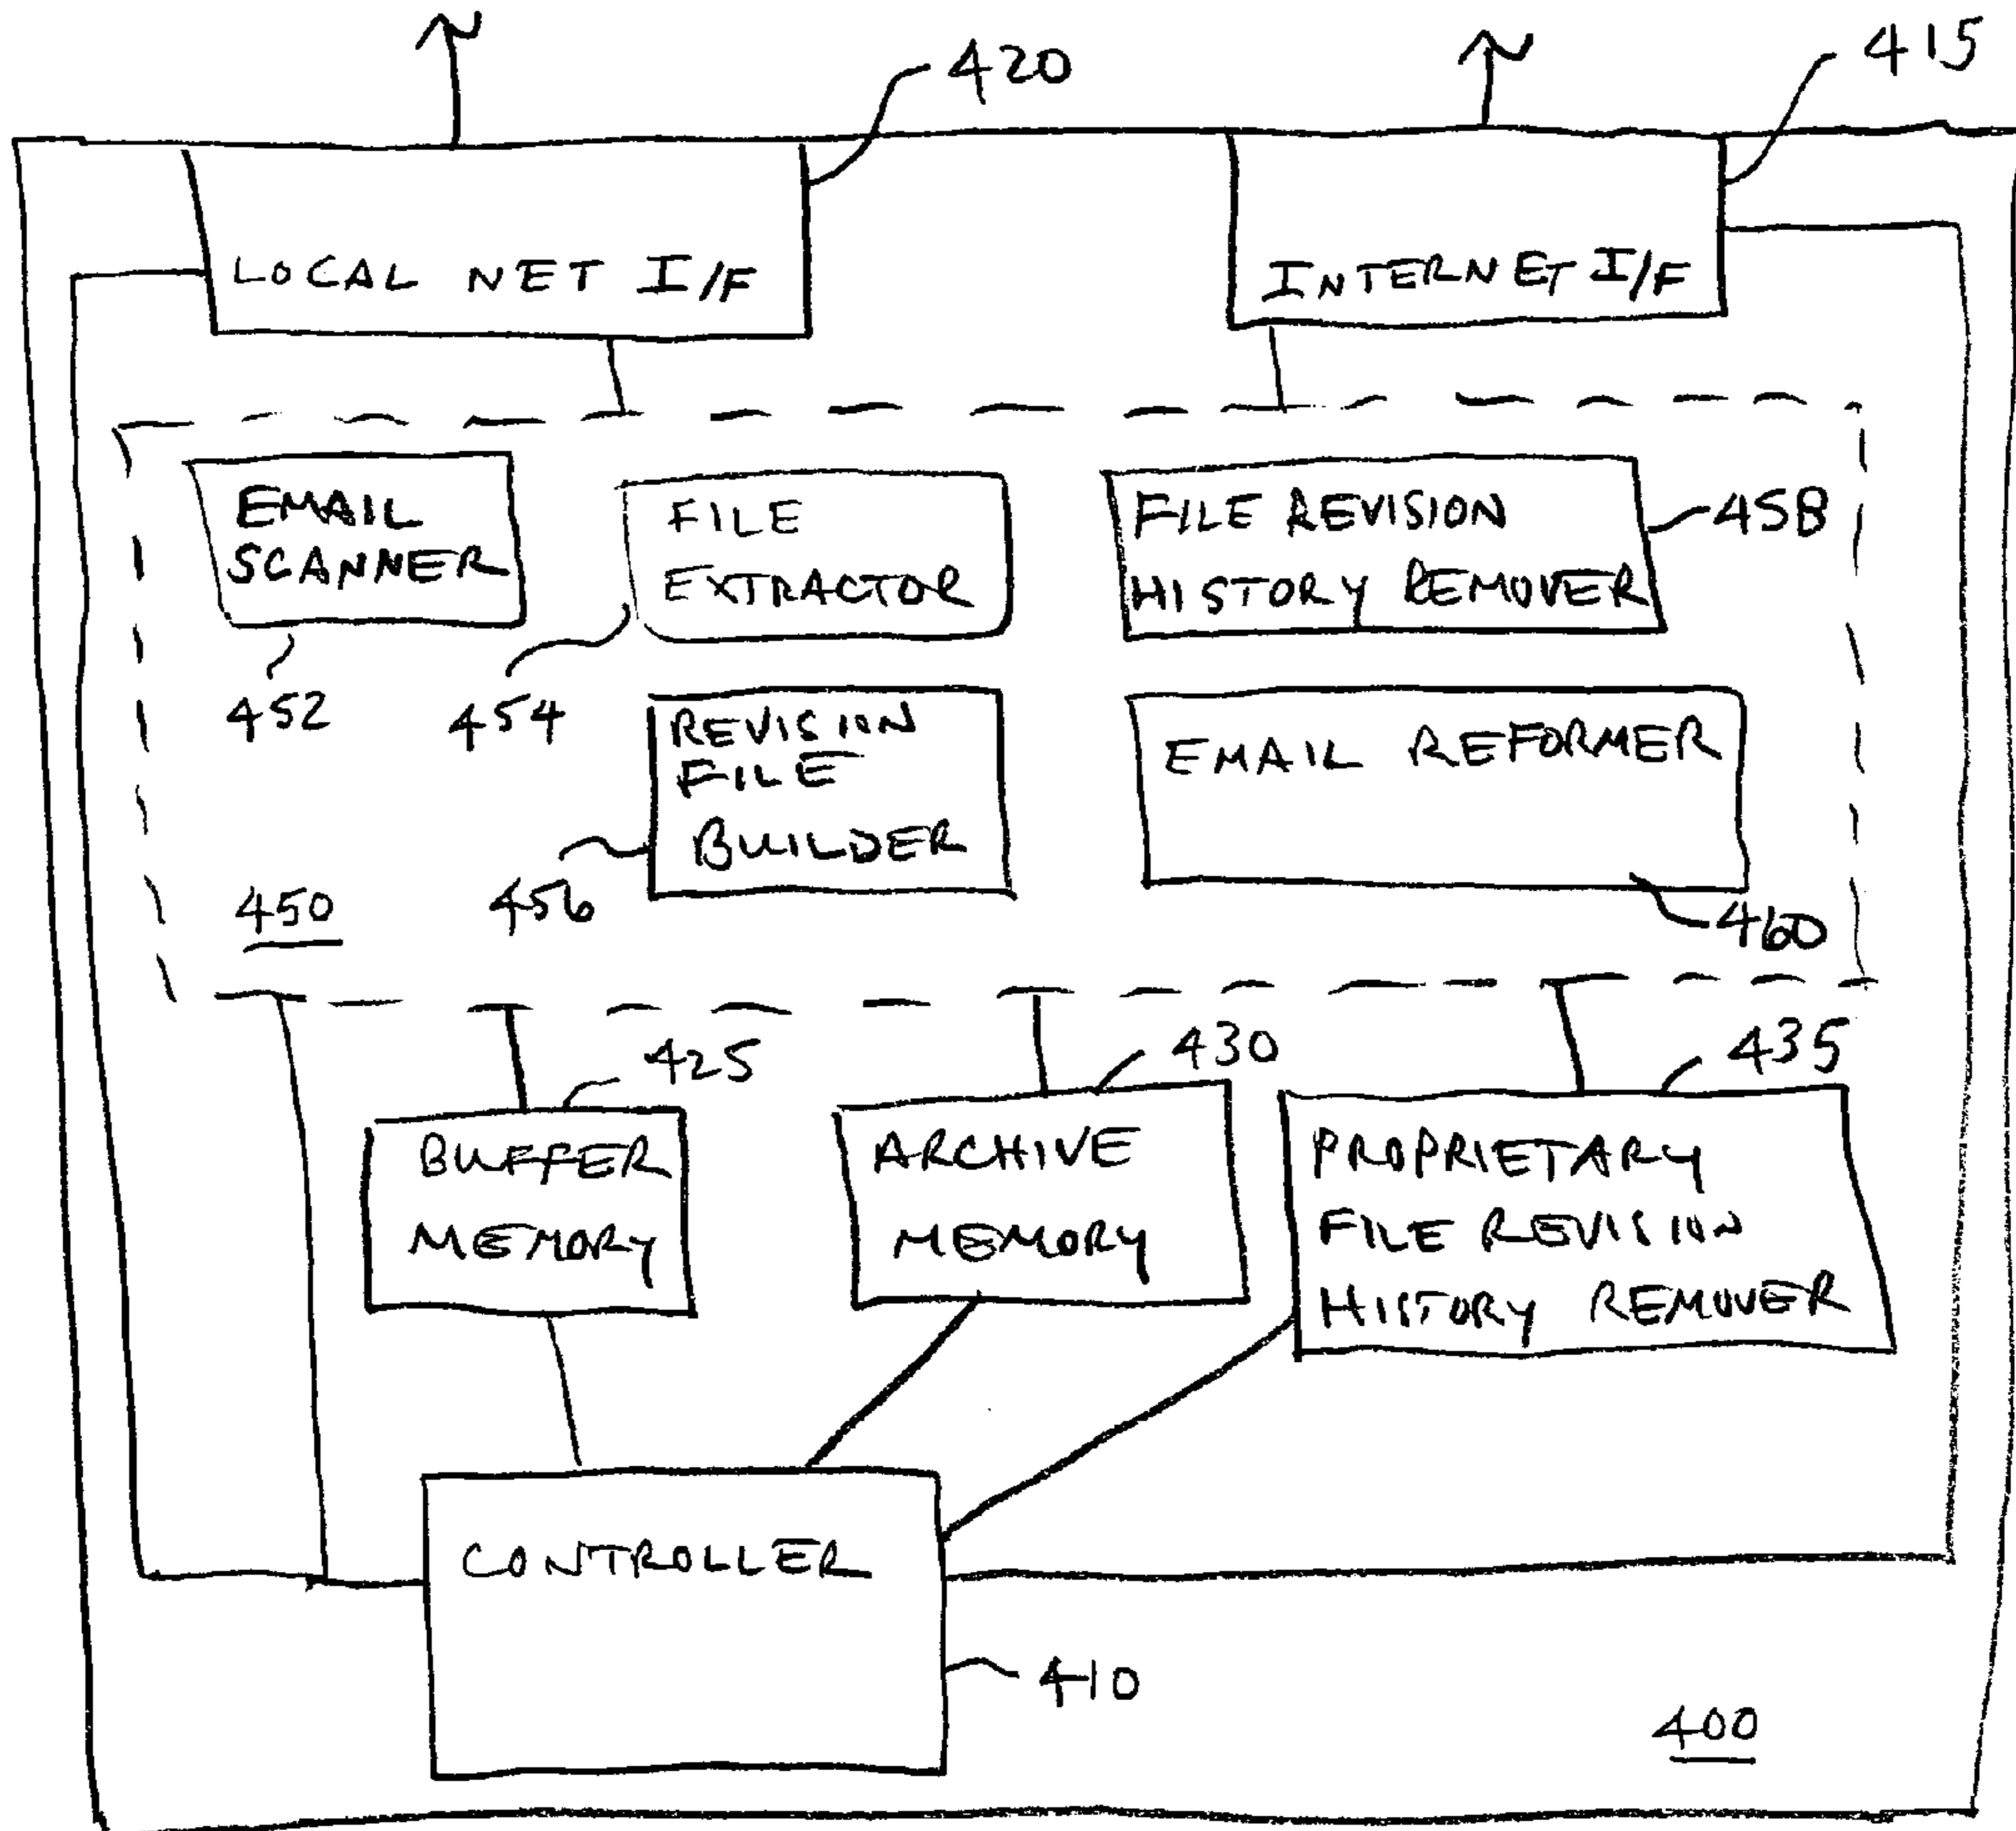 420
415
LOCAL NET I/F
INTERNET I/F
EMAIL
SCANNER
452
FILE
EXTRACTOR
454
FILE REVISION
HISTORY REMOVER
458
REVISION
FILE
BUILDER
456
EMAIL REFORMER
460
450
425
BUFFER
MEMORY
430
ARCHIVE
MEMORY
435
PROPRIETARY
FILE REVISION
HISTORY REMOVER
CONTROLLER
410
400